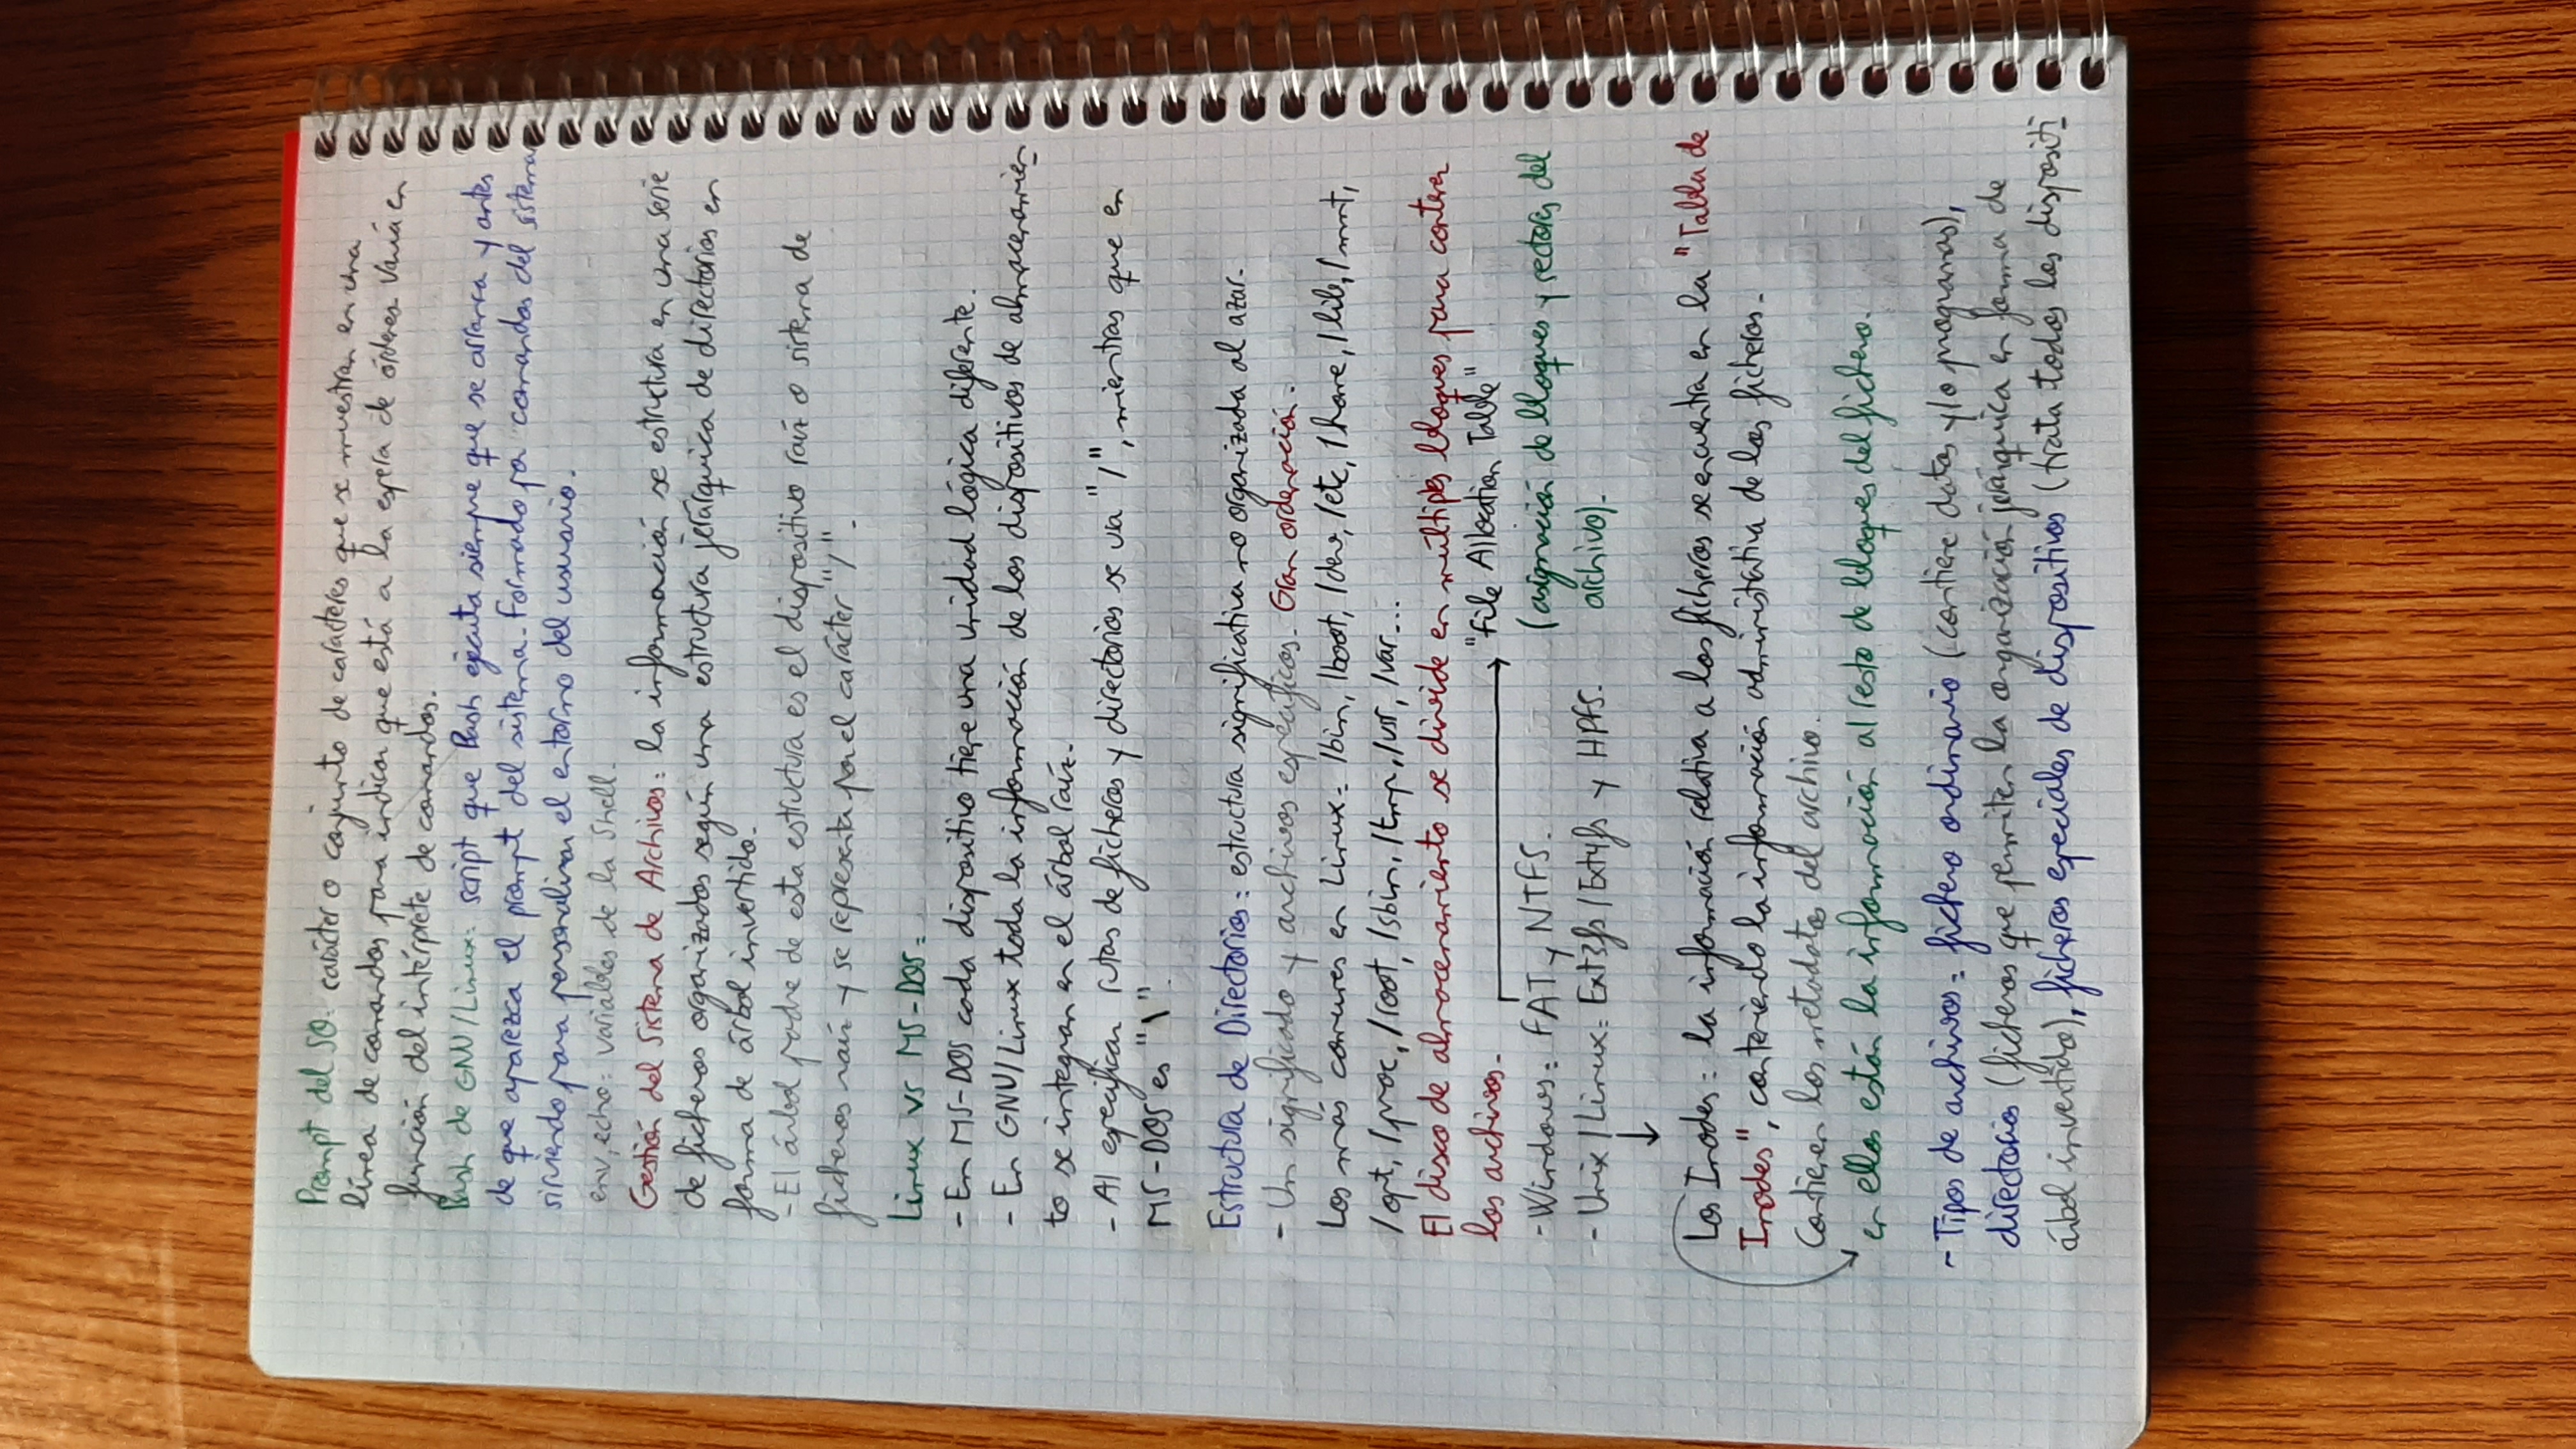 Prompt del SO: carácter o conjunto de caracteres que se muestran en una
línea de comandos para indicar que está a la espera de órdenes. Varía en
función del intérprete de comandos.
Bash de GNU/Linux: script que Bash ejecuta siempre que se arranca y antes
de que aparezca el prompt del sistema. Formado por comandos del sistema
sirviendo para personalizar el entorno del usuario.
env, echo: variables de la Shell.
Gestión del Sistema de Archivos: la información se estructura en una serie
de ficheros organizados según una estructura jerárquica de directorios en
forma de árbol invertido.
- El árbol padre de esta estructura es el dispositivo raíz o sistema de
ficheros raíz y se representa por el carácter "/".
Linux vs MS-DOS:
- En MS-DOS cada dispositivo tiene una unidad lógica diferente.
- En GNU/Linux toda la información de los dispositivos de almacenamien-
to se integran en el árbol raíz.
- Al especificar rutas de ficheros y directorios se usa "/", mientras que en
MS-DOS es "\".
Estructura de Directorios: estructura significativa no organizada al azar.
- Un significado y archivos específicos. Gran ordenación.
Los más comunes en Linux: /bin, /boot, /dev, /etc, /home, /lib, /mnt,
/opt, /proc, /root, /sbin, /tmp, /usr, /var...
El disco de almacenamiento se divide en múltiples bloques para contener
los archivos. → "File Allocation Table"
- Windows: FAT y NTFS. (asignación de bloques y sectores del
- Unix/Linux: Ext3fs/Ext4fs y HPFS. archivo).
Los Inodes: la información relativa a los ficheros se encuentra en la "Tabla de
Inodes", conteniendo la información administrativa de los ficheros.
Contienen los metadatos del archivo.
en ellos están la información al resto de bloques del fichero.
- Tipos de archivos: fichero ordinario (contiene datos y/o programas),
directorios (ficheros que permiten la organización jerárquica en forma de
árbol invertido), ficheros especiales de dispositivos (trata todos los dispositi-